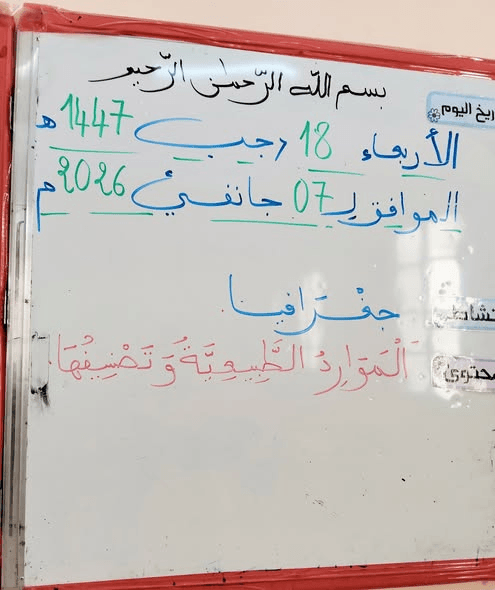 بسم الله الرّحمان الرّحيم
ريخ اليوم
الأربعاء 18 رجب 1447 هـ
الموافق لـ 07 جانفي 2026 م
نشاط
جغْرَافيا
محتوى
الْمَوَارِدُ الطَّبِيعِيَّةُ وَتَصْنِيفُهَا